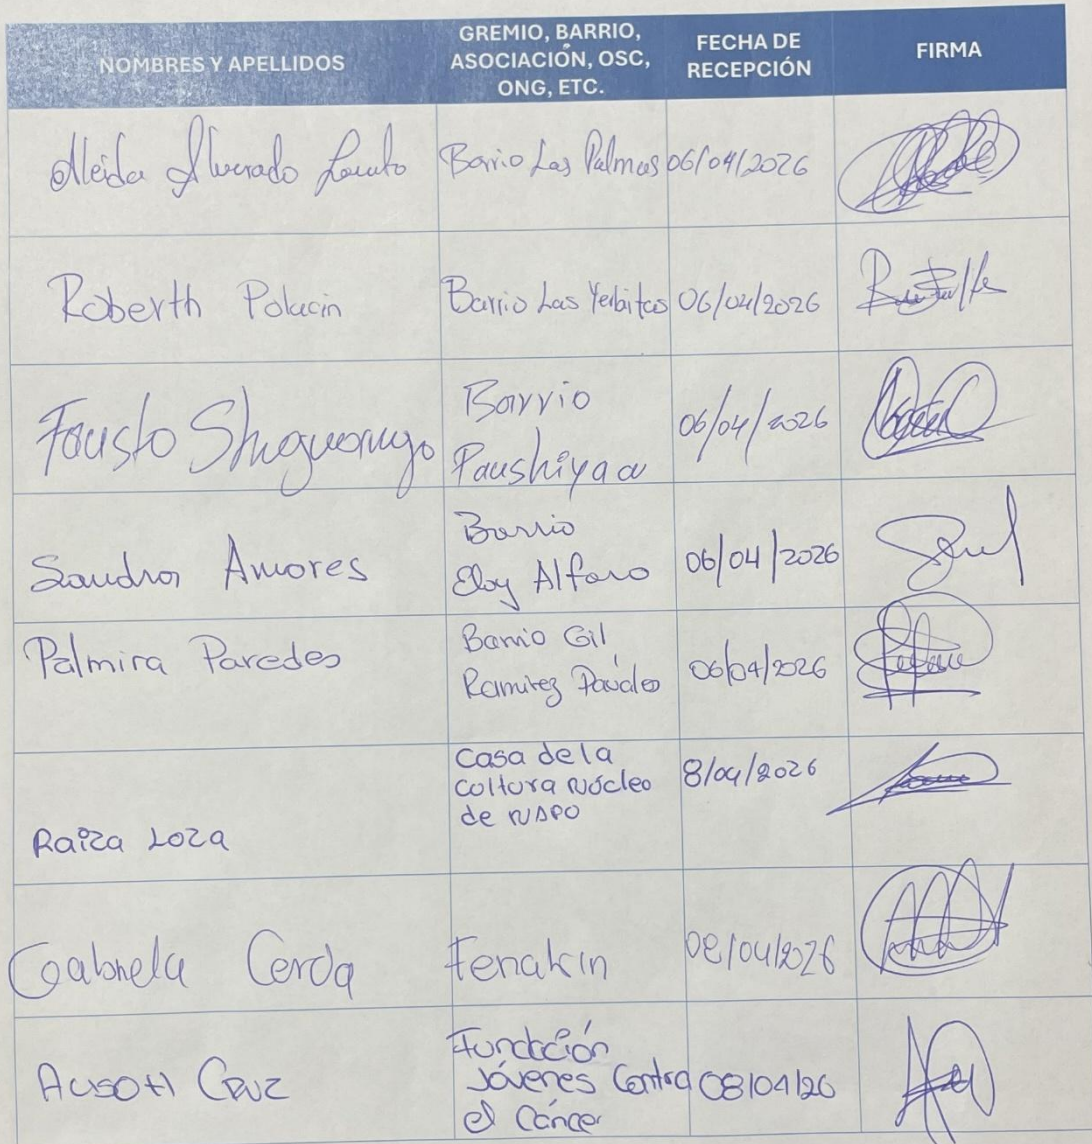 NOMBRES Y APELLIDOS
GREMIO, BARRIO,
ASOCIACIÓN, OSC,
ONG, ETC.
FECHA DE
RECEPCIÓN
FIRMA
Aleida Alvarado
Barrio Las Palmas
06/04/2026
Roberth
Barrio Las Yerbitas
06/04/2026
Fausto Shiguango
Barrio
Paushiyacu
06/04/2026
Sandra Amores
Barrio
Eloy Alfaro
06/04/2026
Palmira Paredes
Barrio Gil
Ramirez Dávalos
06/04/2026
Raiza Loza
Casa de la
Cultura Núcleo
de NAPO
8/04/2026
Gabriela Cerda
Fenakin
08/04/2026
Alison Cruz
Fundación
Jóvenes Contra
el Cáncer
08/04/26